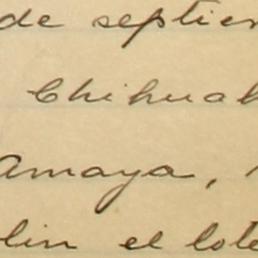 de septien
Chihuah
Amaya,
lin el lote